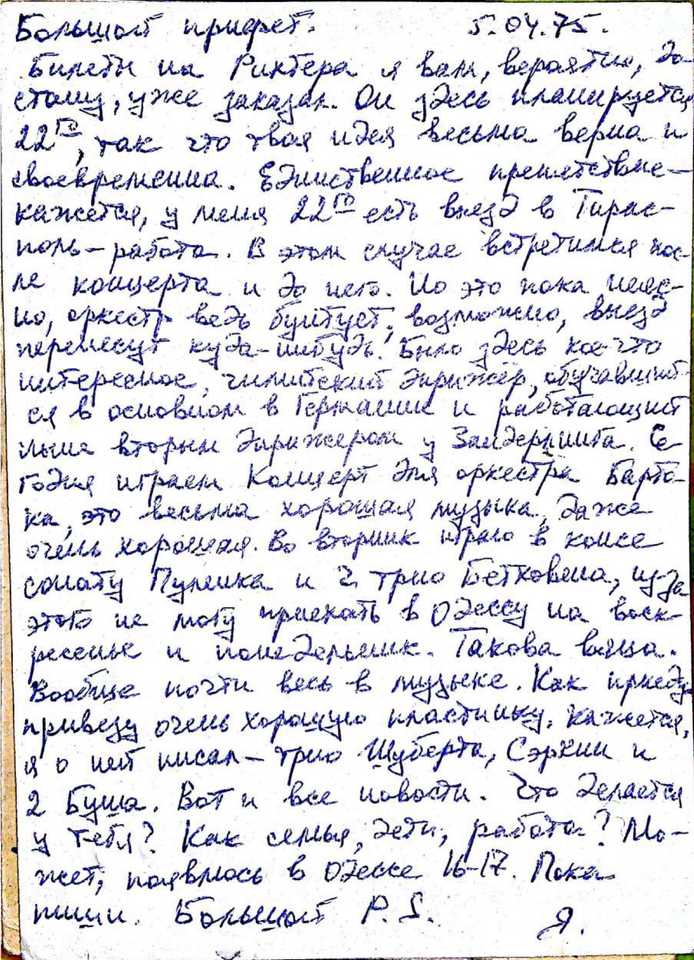 Большой привет. 5.04.75.
Билеты на Рихтера я вам, вероятно, до-
стану, уже заказал. Он здесь планируется
22го, так что твоя идея весьма верна и
своевременна. Единственное препятствие –
кажется, у меня 22го есть выезд в Тирас-
поль – работа. В этом случае встретимся по-
ле концерта и до него. Но это пока неяс-
но, оркестр ведь бунтует, возможно, выезд
перенесут куда-нибудь. Было здесь кое-что
интересное, чилийский дирижёр, обучавший-
ся в основном в Германии и работающий
ныне вторым дирижером у Зандерлинга. Се
годня играем Концерт для оркестра Барто-
ка, это весьма хорошая музыка, даже
очень хорошая. Во вторник играю в консе
сонату Пуленка и 2 трио Бетховена, из-за
этого не могу приехать в Одессу на воск-
ресенье и понедельник. Такова
Вообще почти весь в музыке. Как приеду
привезу очень хорошую пластинку, кажется,
я о ней писал – трио Шуберта, Сэркин и
2 Буша. Вот и все новости. Что делается
у тебя? Как семья, дети, работа? Мо-
жет, появлюсь в Одессе 16-17. Пока
пиши. Большой P.S.
Я.